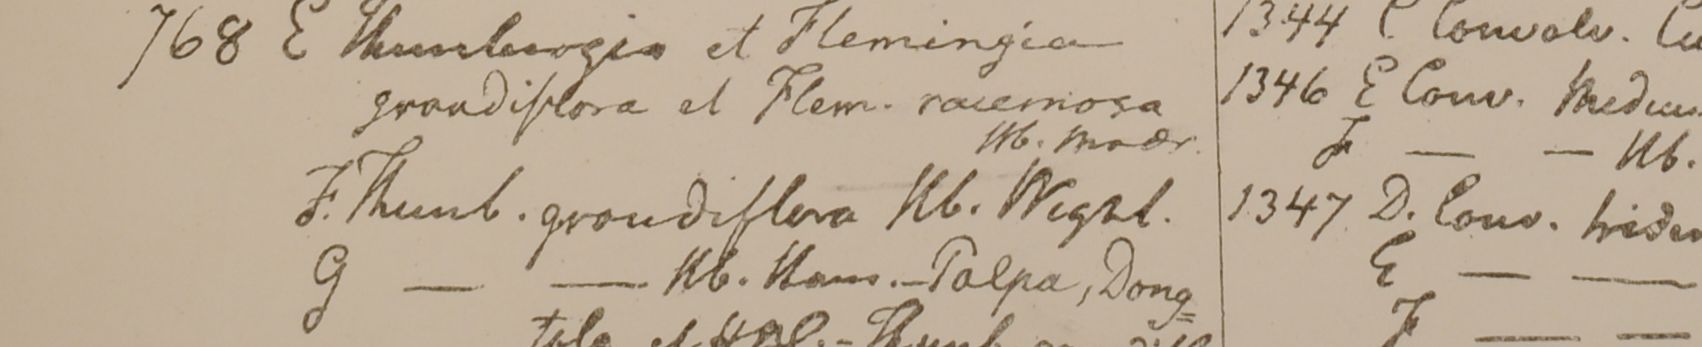 768 E Thunbergia et Flemingia
grandiflora et Flem. racemosa
Hb. Madr.
F. Thunb. grandiflora Hb. Wight.
G — — Hb. Ham. – Palpa, Dong=
et HBC. – Thunb.
1344 C Convolv.
1346 E Conv. Medium
F — — Hb.
1347 D. Conv.
E — —
F — —